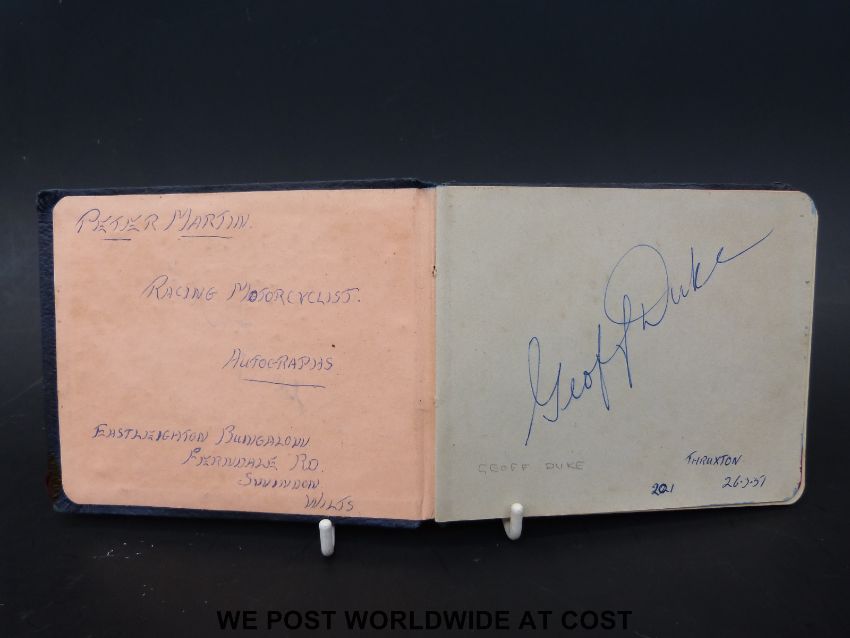 PETER MARTIN.
RACING MOTORCYCLIST.
AUTOGRAPHS
EASTLEIGHTON BUNGALOW
FERNDALE RD.
SWINDON
WILTS
Geoff Duke
GEOFF DUKE
THRUXTON
201
WE POST WORLDWIDE AT COST